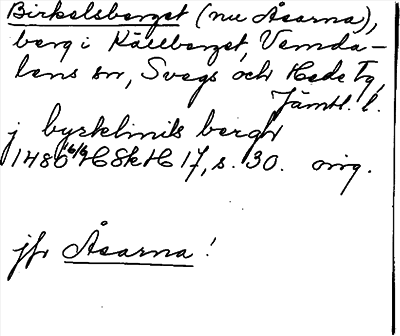 Birkelsberget (nu Åsarna),
berg i Källberget, Vemda-
lens sn, Svegs och Hede Tg,
Jämtl. l.
j byrklinils bergh
1480 6/6 HSkH 17, s. 30. orig.
jfr Åsarna!